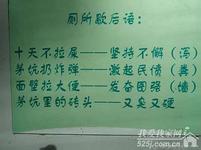 厕所歇后语：
十天不拉屎——坚持不懈（泻）
茅坑扔炸弹——激起民愤（粪）
面壁拉大便——发奋图强（墙）
茅坑里的砖头——又臭又硬
我爱我家网
525j.com.cn